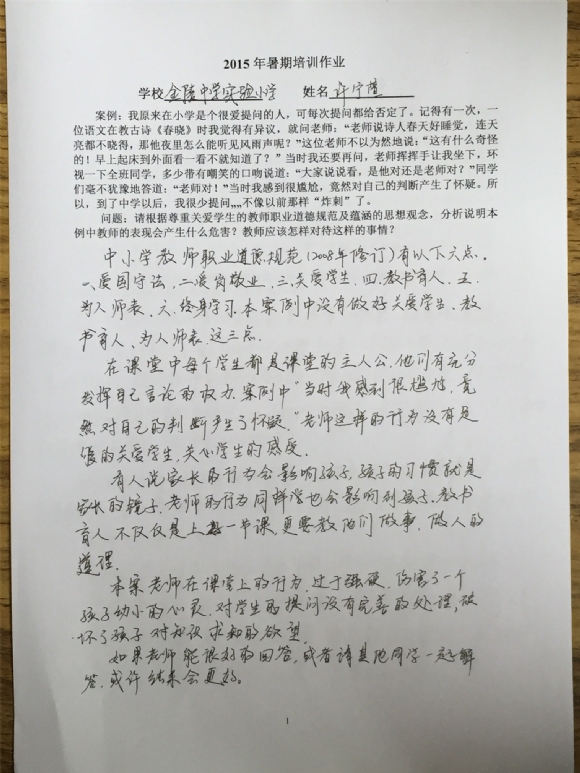 2015 年暑期培训作业
学校 金陵中学实验小学 姓名 许宁
案例：我原来在小学是个很爱提问的人，可每次提问都给否定了。记得有一次，一
位语文在教古诗《春晓》时我觉得有异议，就问老师：“老师说诗人春天好睡觉，连天
亮都不晓得，那他夜里怎么能听见风雨声呢？”这位老师不以为然地说：“这有什么奇怪
的！早上起床到外面看一看不就知道了？”当时我还要再问，老师挥挥手让我坐下，环
视一下全班同学，多少带有嘲笑的口吻说道：“大家说说看，是他对还是老师对？”同学
们毫不犹豫地答道：“老师对！”当时我感到很尴尬，竟然对自己的判断产生了怀疑。所
以，到了中学以后，我很少提问„„不像以前那样“炸刺”了。
问题：请根据尊重关爱学生的教师职业道德规范及蕴涵的思想观念，分析说明本
例中教师的表现会产生什么危害？教师应该怎样对待这样的事情？
中小学教师职业道德规范（2008年修订）有以下六点．
一、爱国守法．二、爱岗敬业．三、关爱学生．四．教书育人．五．
为人师表．六．终身学习．本案例中没有做好关爱学生、教
书育人、为人师表．这三点．
在课堂中每个学生都是课堂的主人公．他们有充分
发挥自己言论的权力．案例中“当时我感到很尴尬，竟
然对自己的判断产生了怀疑．”老师这样的行为没有足
够的关爱学生，关心学生的感受．
有人说家长的行为会影响孩子，孩子的习惯就是
家长的镜子．老师的行为同样也会影响到孩子．教书
育人不仅仅是上一节课，更要教他们做事、做人的
道理．
本案老师在课堂上的行为，过于强硬，伤害了一个
孩子幼小的心灵．对学生的提问没有完善的处理，破
坏了孩子对知识求知的欲望．
如果老师能很好的回答，或者请其他同学一起解
答，或许结果会更好。
1